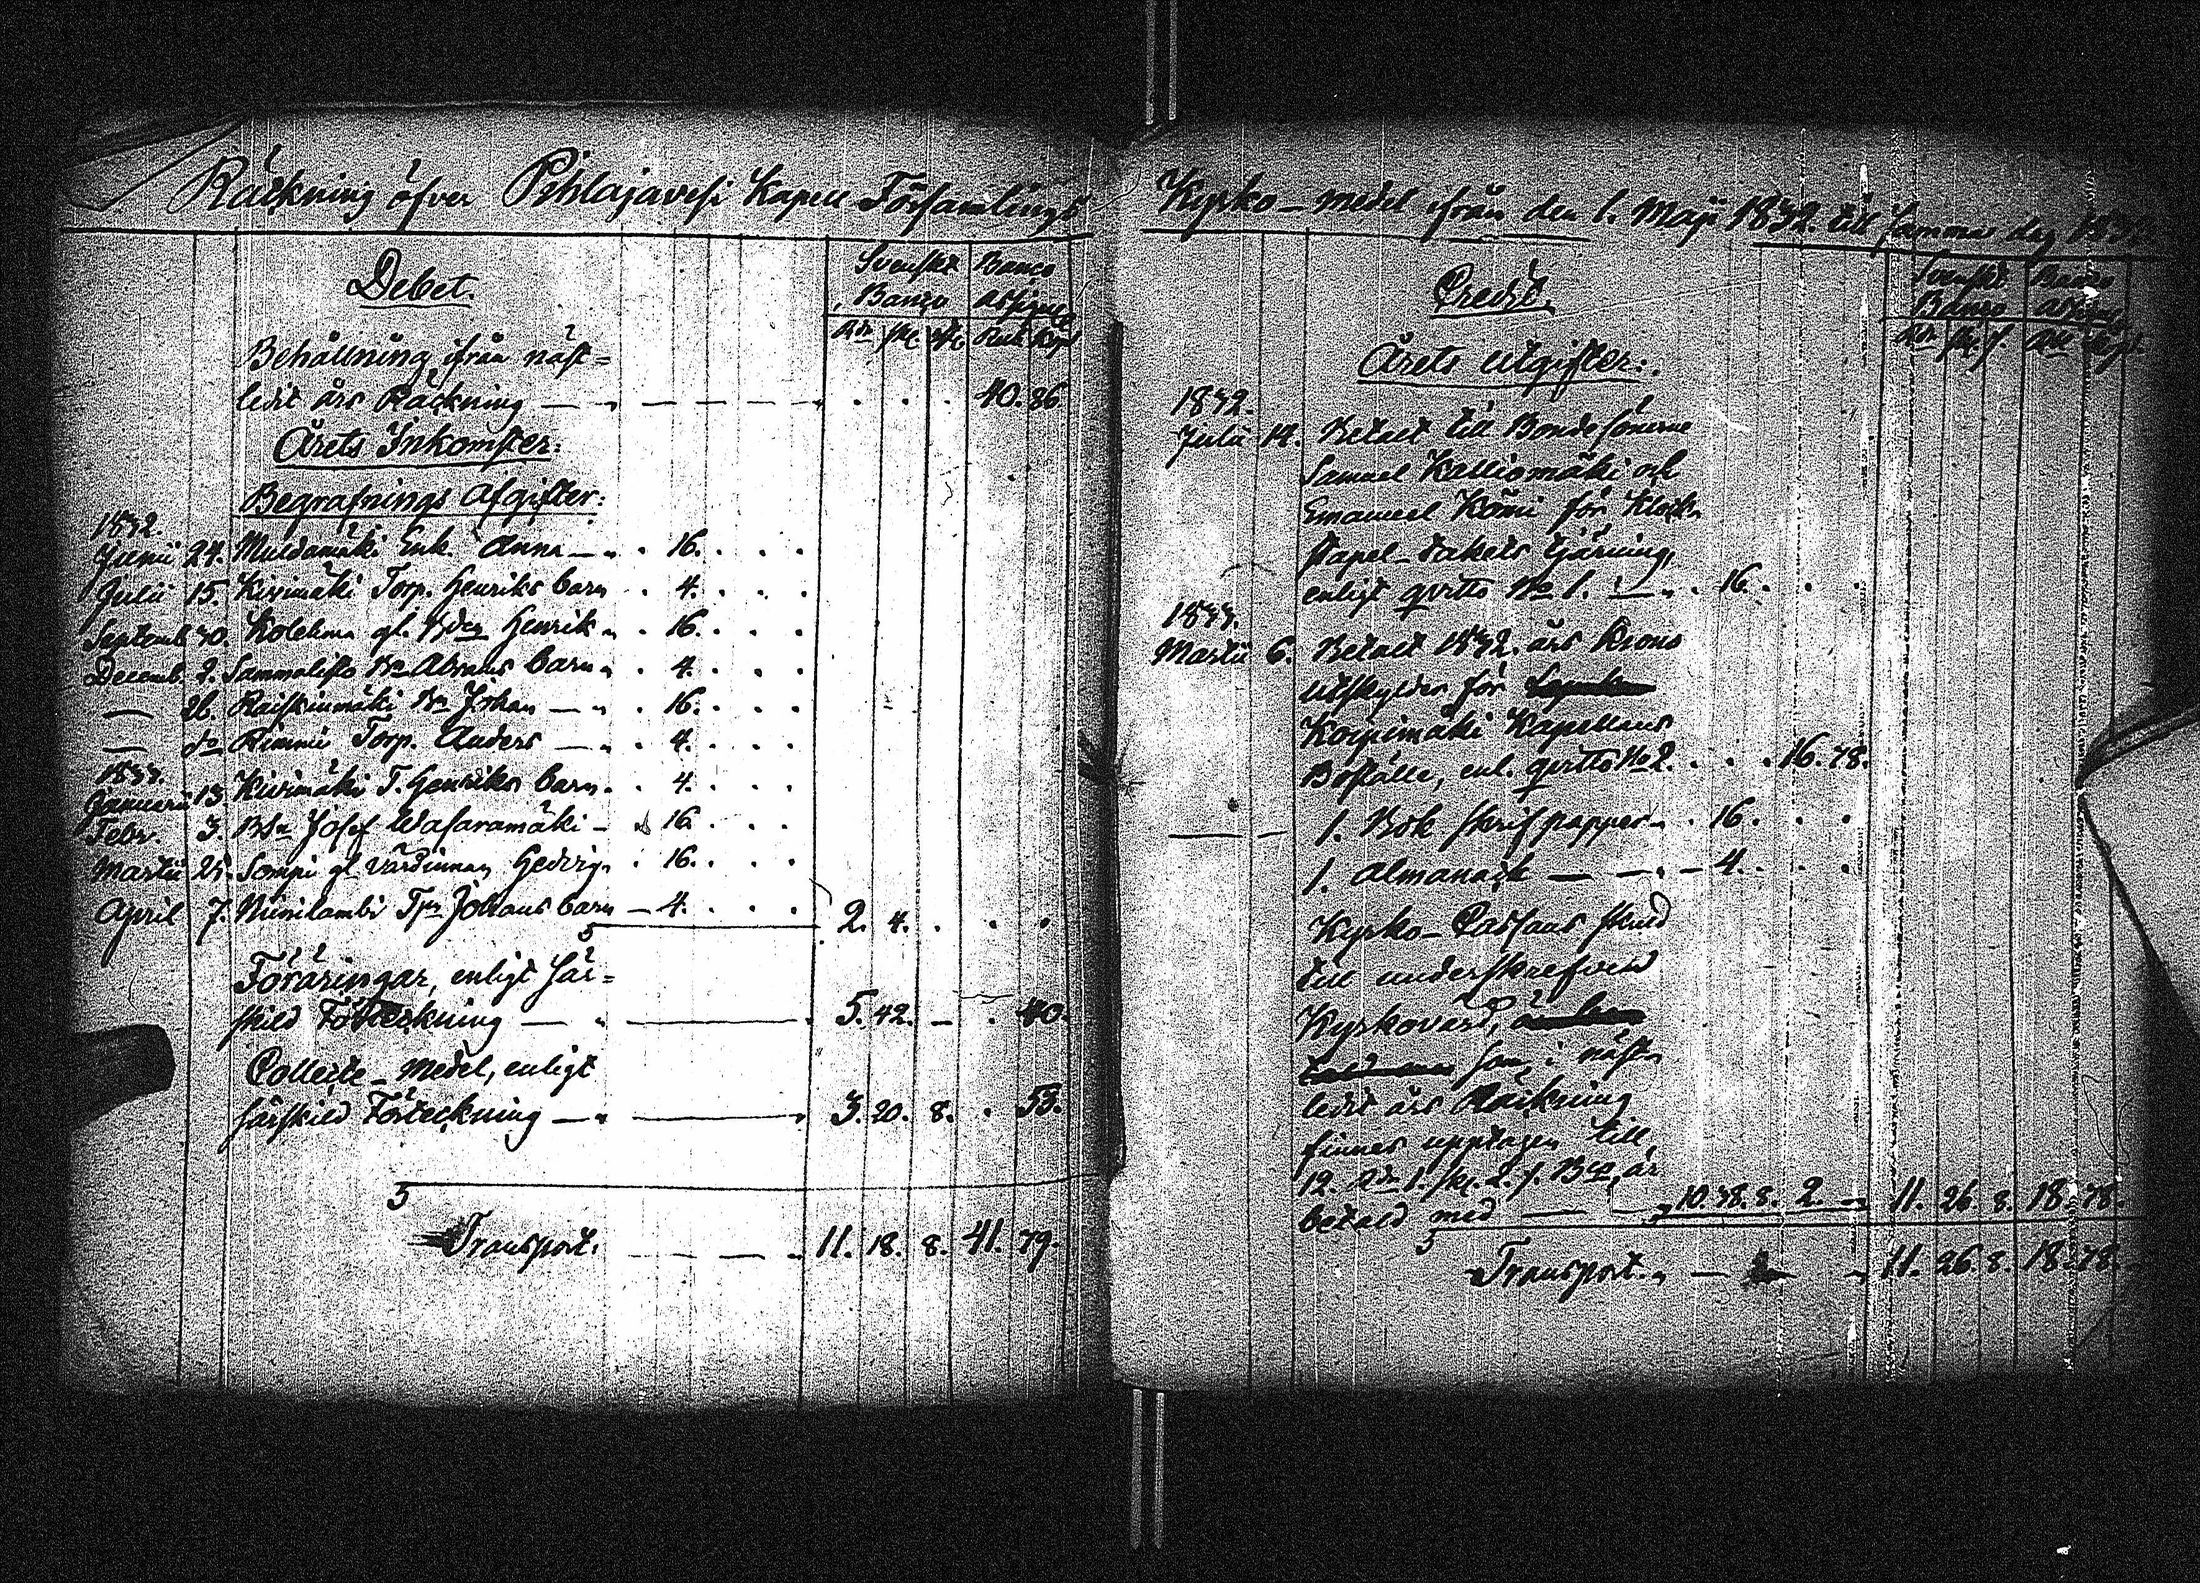 Räckning öfver Pihlajavesi Kapell Församlings
Debet.
Svenskt Banco
Banco Assignat
Rdr sk. rst. Rub. Kop.
Behållning ifrån näst=
ledit års Räckning — — — — — 40. 86
Årets Inkomster:
Begrafnings Afgifter:
1832.
Junii 24. Muldamäki Enk. Anna — . 16. . . .
Julii 15. Kivimäki Torp. Henriks barn . 4. . . .
Septemb. 30. Kolehma gl. Henrik . 16. . . .
Decemb. 2. Barn . 4. . . .
— 26. Raiskinmäki Johan — . 16. . . .
— do Rimmi Torp. Anders — . 4. . . .
1833.
Januarii 13. Kivimäki T. Henriks barn . 4. . . .
Febr. 3. Josef Wasaramäki — . 16. . . .
Martii 25. Sompi gl. Värdinnan Hedvig . 16. . . .
April 7. Niinilambi Johans barn — 4. . . .
2. 4. . . .
Föräringar, enligt sär=
skild Förteckning — — 5. 42. — . 40.
Collecte-Medel, enligt
särskild Förteckning — — 3. 20. 8. . 53.
Transport. — — — 11. 18. 8. 41. 79.
Kyrko-medel ifrån den 1. Maji 1832. till samma dag 1833.
Credit.
Svenskt Banco
Banco Assignat
Årets Utgifter:
1832.
Julii 14. Betalt till Bondesönerne
Samuel Kalliomäki och
Emanuel Kömi för Klock-
stapel-takets tjärning,
enligt qvitto No 1. — . 16. . .
1833.
Martii 6. Betalt 1832. års Krono
Utskylder för
Koipimäki Kapellans
Boställe, enl. qvitto No 2. . . . 16. 78.
— 1. Bok skrifpapper . 16. . .
1. Almanack — — 4. . .
Kyrko-Cassans skuld
till underskrefven
Kyrkovärd,
som i näst-
ledit års Räckning
finnes upptagen till
12. Rdr 1. sk. 2. r. Bco, är
betald med — — 10. 38. 8. 2. — 11. 26. 8. 18. 78.
Transport. — — 11. 26. 8. 18. 78.